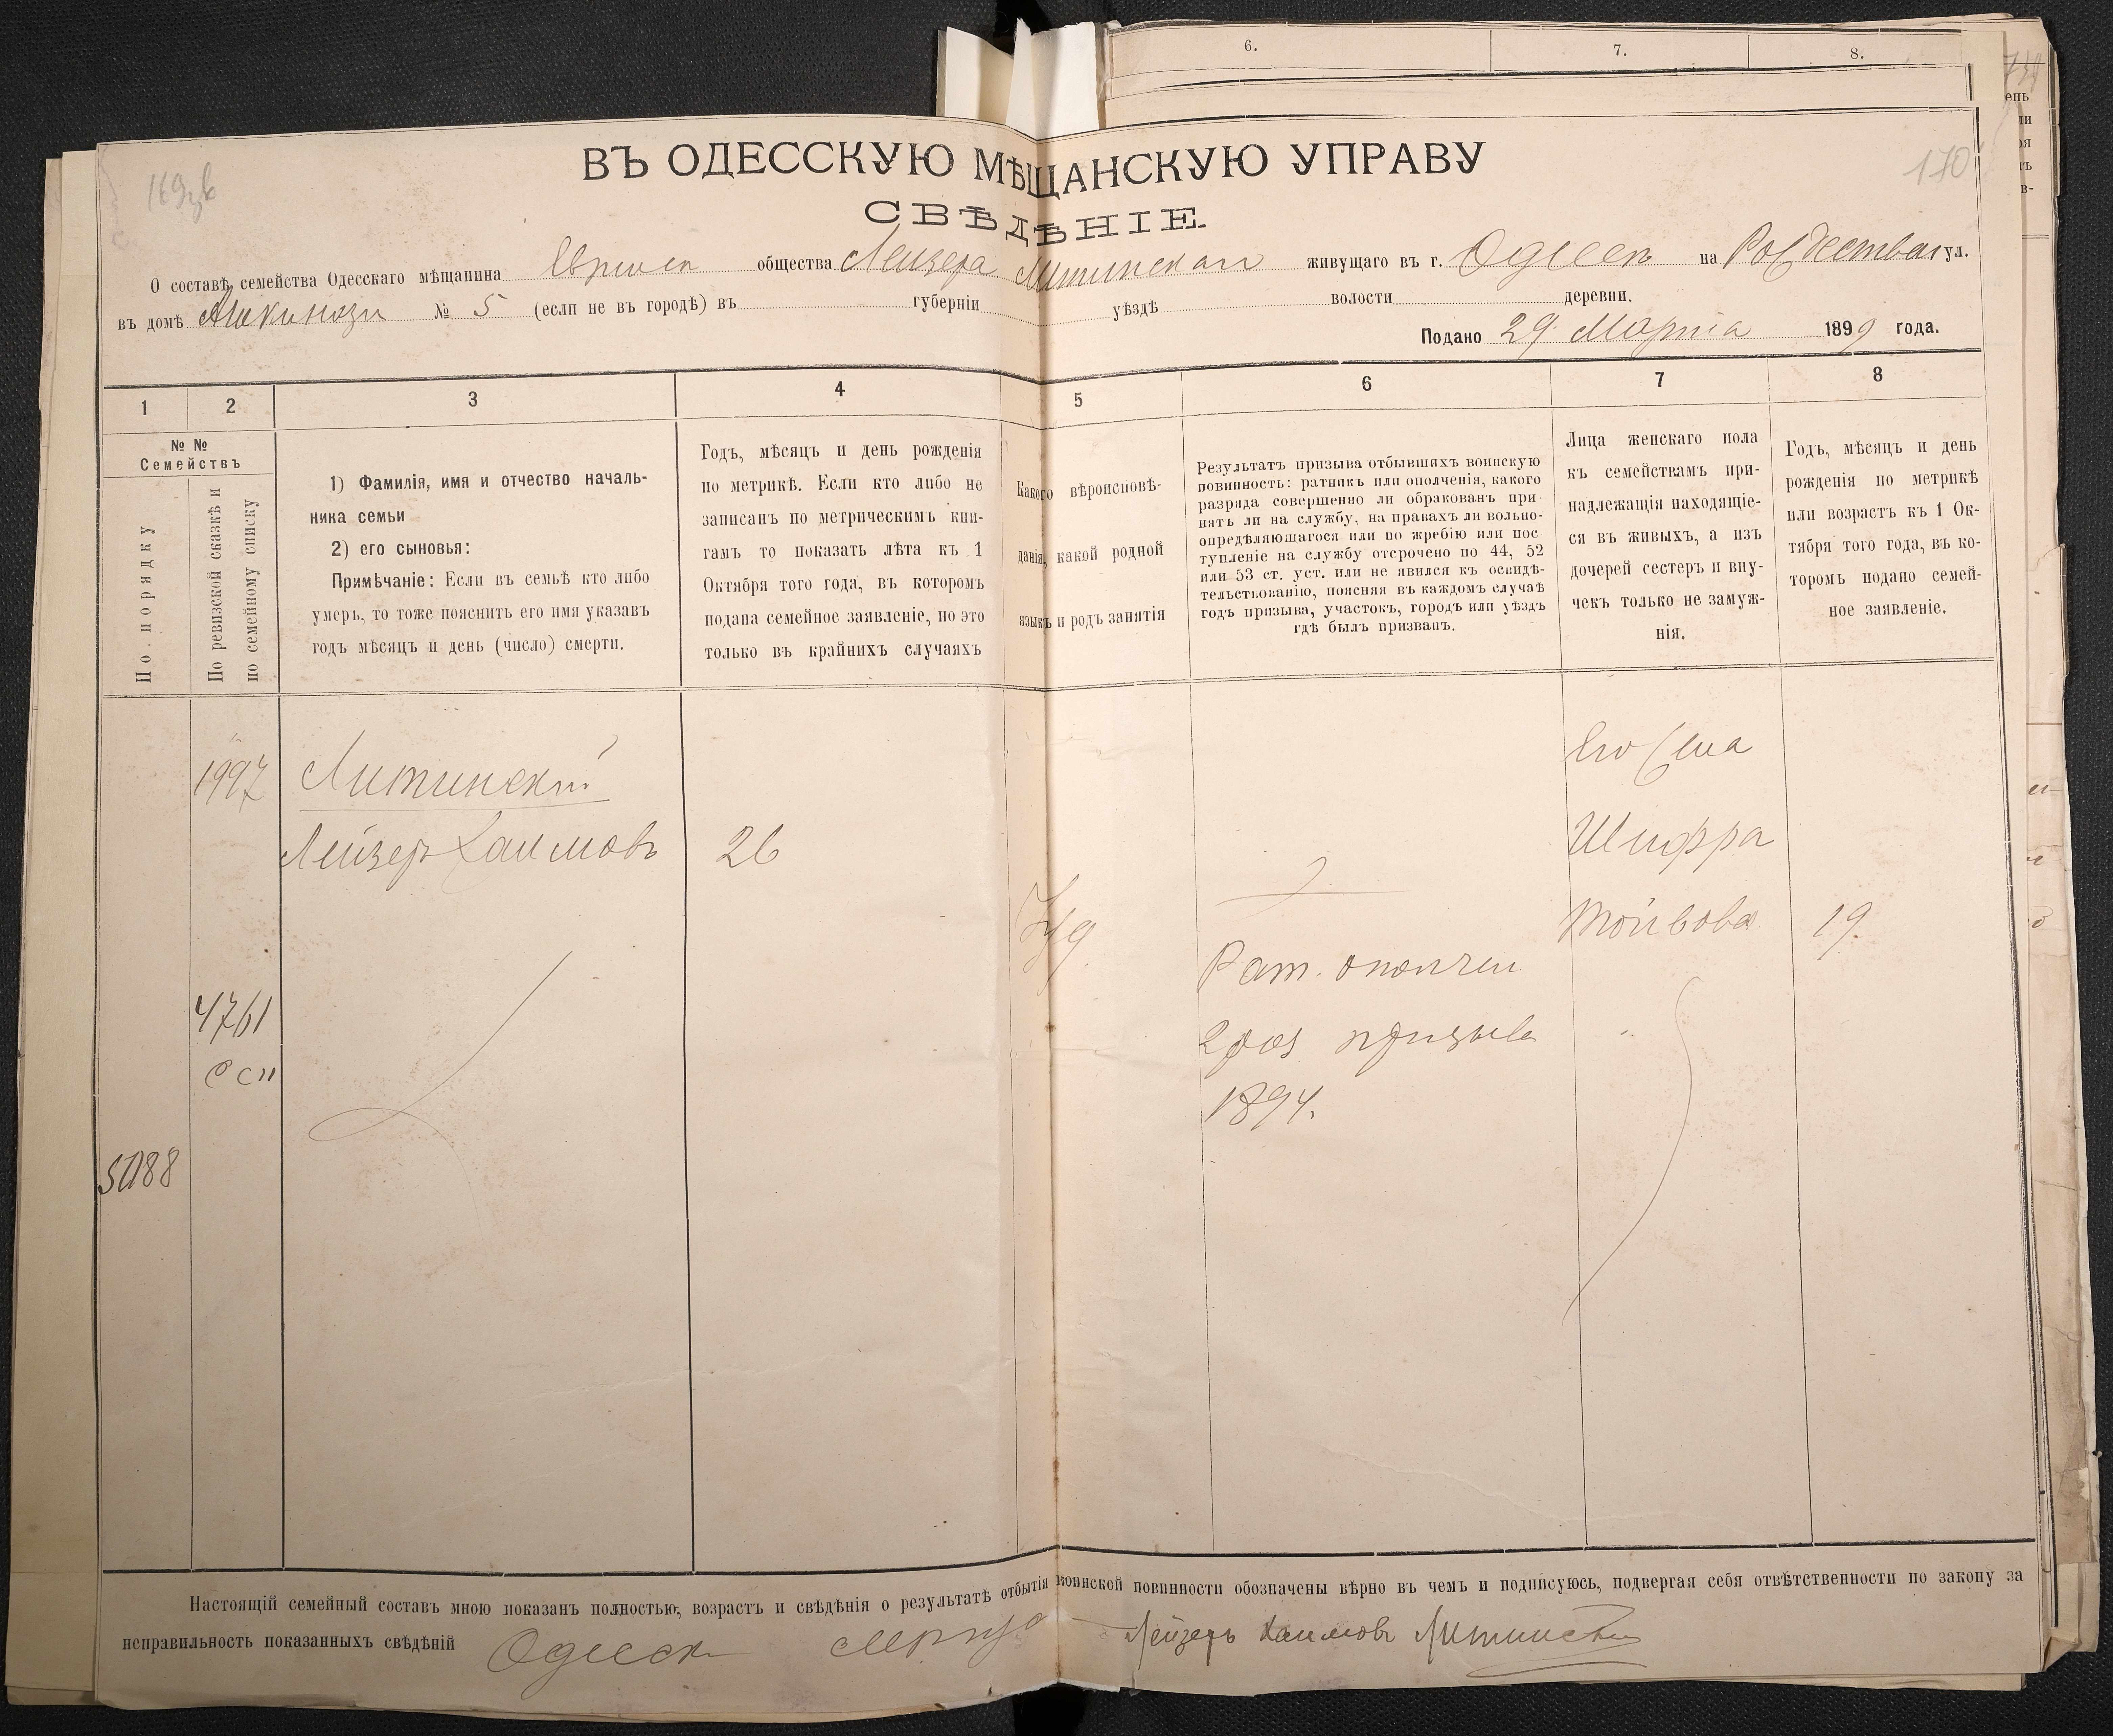 6. 7. 8.
ень
169зв
170
ВЪ ОДЕССКУЮ МѢЩАНСКУЮ УПРАВУ
СВѢДѢНІЕ.
О составѣ семейства Одесскаго мѣщанина Евреиск общества Лейзера Литинскаго живущаго въ г. Одессѣ на ул.
въ домѣ № 5 (если не въ городѣ) въ губерніи уѣздѣ волости деревни.
Подано 29 Марта 1899 года.
1 2 3 4 5 6 7 8
№ №
Семействъ
По порядку
По ревизской сказкѣ и
по семейному списку
1) Фамилія, имя и отчество началь-
ника семьи
2) его сыновья:
Примѣчаніе: Если въ семьѣ кто либо
умеръ, то тоже пояснить его имя указавъ
годъ мѣсяцъ и день (число) смерти.
Годъ, мѣсяцъ и день рожденія
по метрикѣ. Если кто либо не
записанъ по метрическимъ кни-
гамъ то показать лѣта къ 1
Октября того года, въ которомъ
подана семейное заявленіе, но это
только въ крайнихъ случаяхъ
Какого вѣроисповѣ-
данія, какой родной
языкъ и родъ занятія
Результатъ призыва отбывшихъ воинскую
повинность: ратникъ или ополченія, какого
разряда совершенно ли обракованъ при-
нятъ ли на службу, на правахъ ли вольно-
опредѣляющагося или по жребію или пос-
тупленіе на службу отсрочено по 44, 52
или 53 ст. уст. или не явился къ освидѣ-
тельствованію, поясняя въ каждомъ случаѣ
годъ призыва, участокъ, городъ или уѣздъ
гдѣ былъ призванъ.
Лица женскаго пола
къ семействамъ при-
надлежащія находящіе-
ся въ живыхъ, а изъ
дочерей сестеръ и вну-
чекъ только не замуж-
нія.
Годъ, мѣсяцъ и день
рожденія по метрикѣ
или возрастъ къ 1 Ок-
тября того года, въ ко-
торомъ подано семей-
ное заявленіе.
1997 Литинскій
Лейзеръ Хаимовъ 26
Іуд.
Рат. ополчен
2 раз призыва
1894.
Его жена
Шифра
Тойвова 19.
4761
С сп
5188
Настоящій семейный составъ мною показанъ полностью, возрастъ и свѣдѣнія о результатѣ отбытія воинской повинности обозначены вѣрно въ чемъ и подписуюсь, подвергая себя отвѣтственности по закону за
неправильность показанныхъ свѣдѣній Одесса Лейзеръ Хаимовъ Литинскій